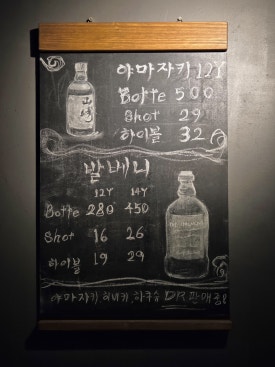 야마자키 12Y
Botte 500
Shot 29
하이볼 32
山崎
발베니
12Y 14Y
Botte 280 450
Shot 16 26
하이볼 19 29
야마자키, 히비키, 하쿠슈 DR 판매중